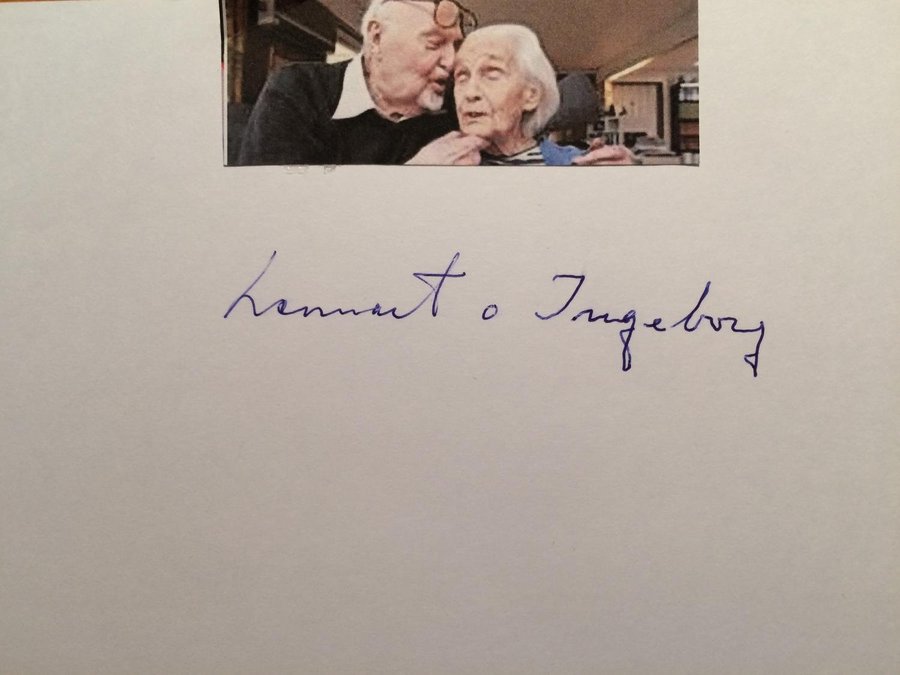 Lennart o Ingeborg